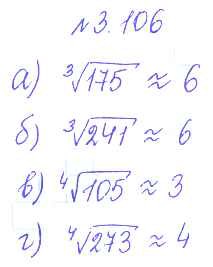 №3.106
а) ³√175 ≈ 6
б) ³√241 ≈ 6
в) ⁴√105 ≈ 3
г) ⁴√273 ≈ 4